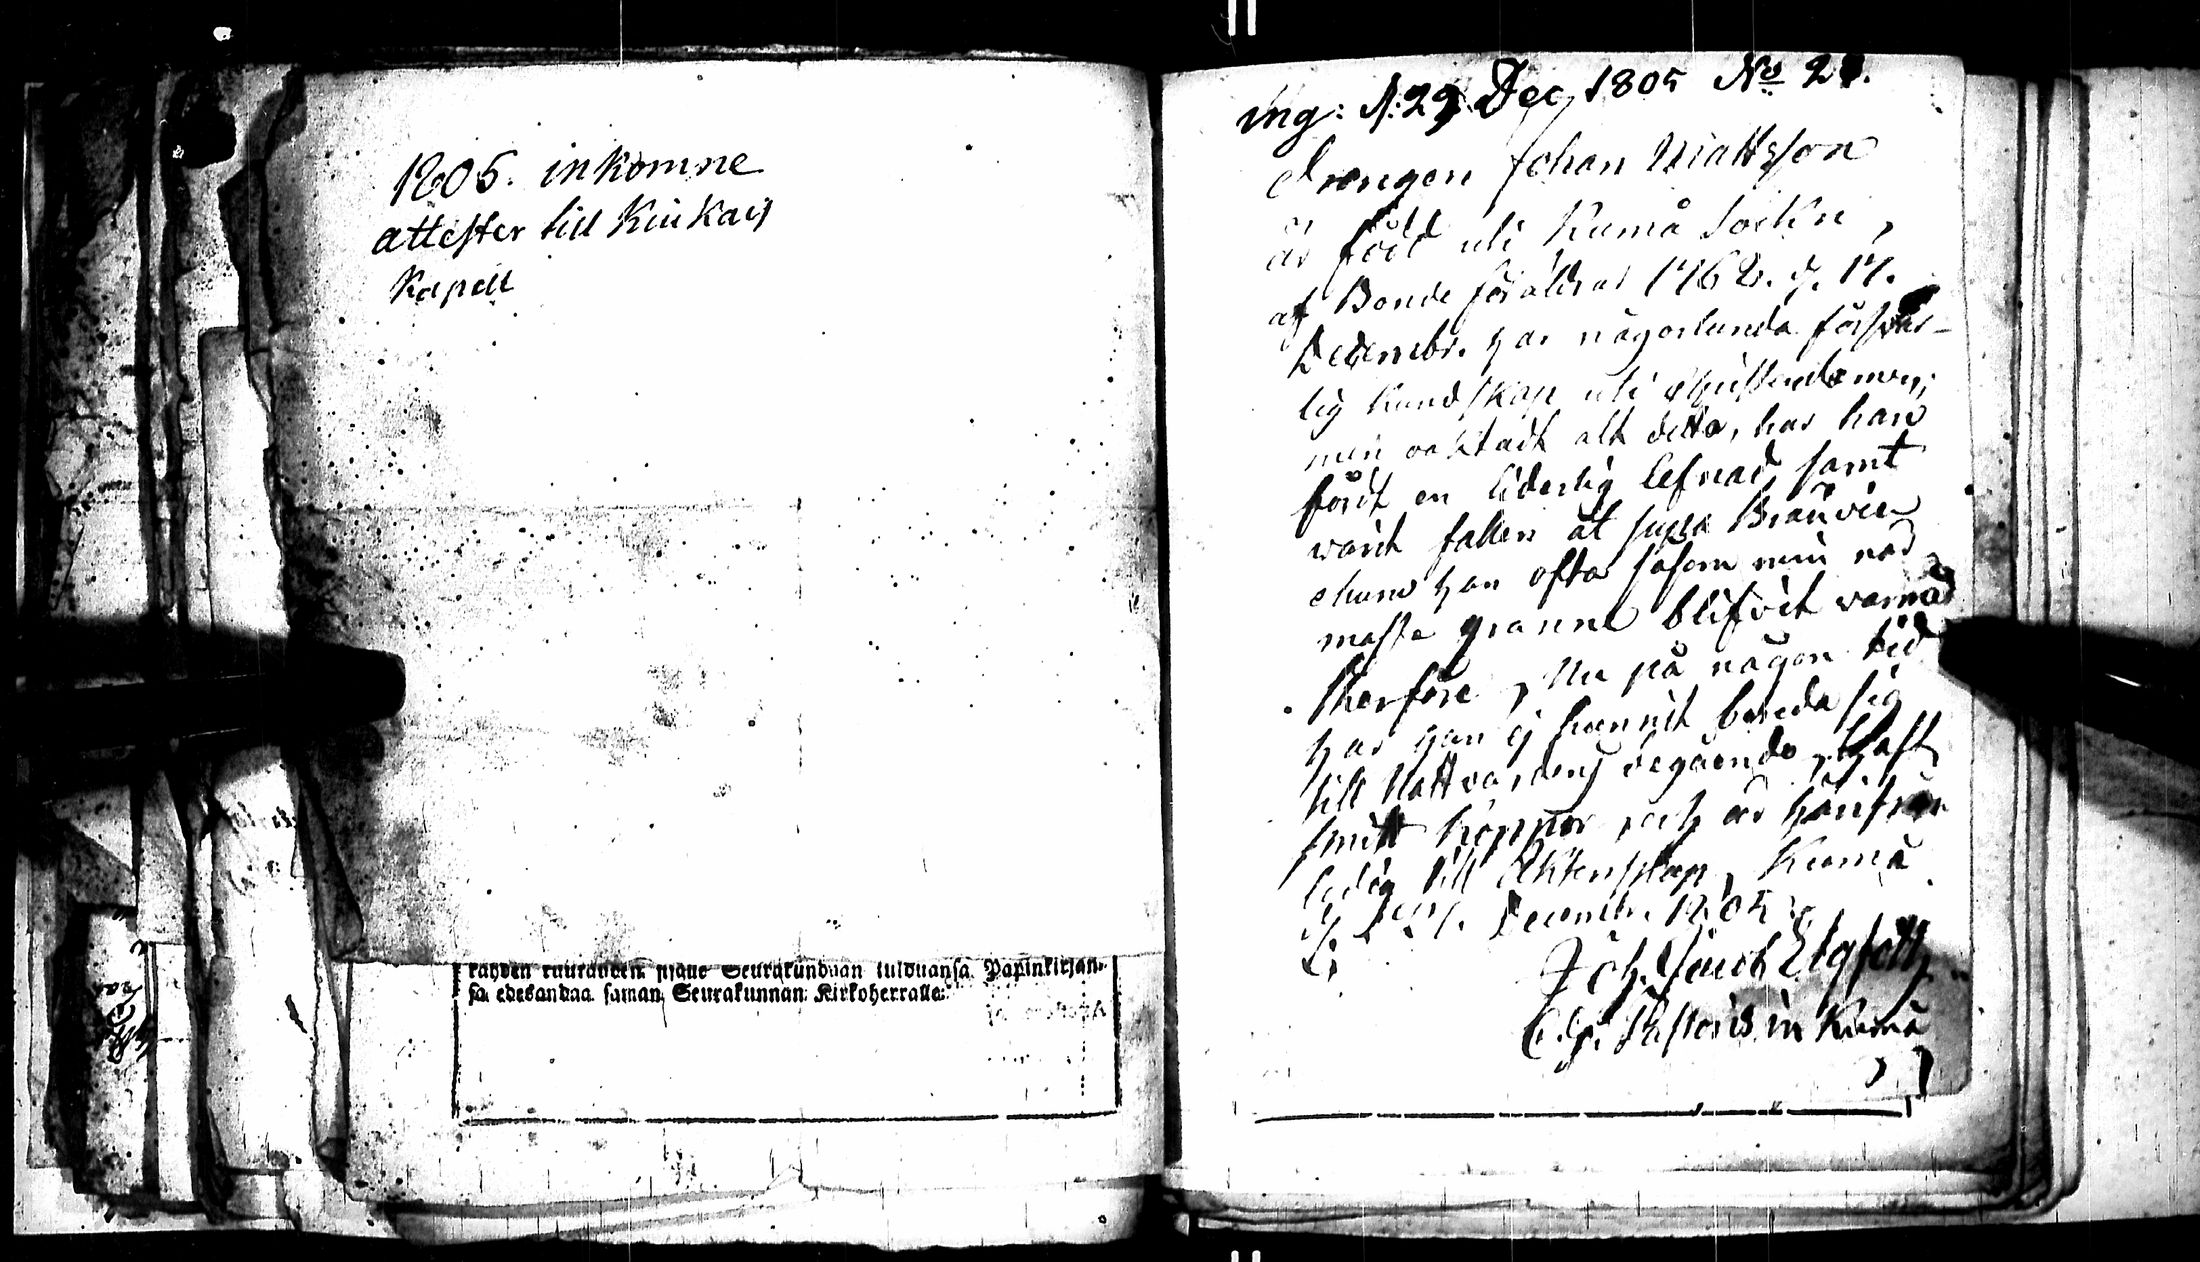 1805. inkomne
attester till Kiukais
Kapell
kahden ruukauden sisälle Seurakundaan tulduansa Papinkirjan-
sa edesandaa saman Seurakunnan Kirkoherralle.
ing: d. 29 Dec, 1805 No 21.
Drängen Johan Mattsson
är född uti Kumå Sockn,
af Bonde föräldrar 1762. d. 17.
Decembr. har någorlunda försvar-
lig kundskap uti Christendomen;
men oaktadt alt detta, har han
fördt en liderlig lefnad samt
varit fallen at supa Brännvin
ehuru han ofta såsom min när
maste granne blifvit varnad
therföre, Nu på någon tid
har han ej hunnit bereda sig
till Nattvardens begående, haft
smitt koppor, och är härifrån
ledig till Ächtenskap, Kumå
d. Decembr. 1805.
Joh. Jacob Elgfoth
Adj. Pastoris in Kumå